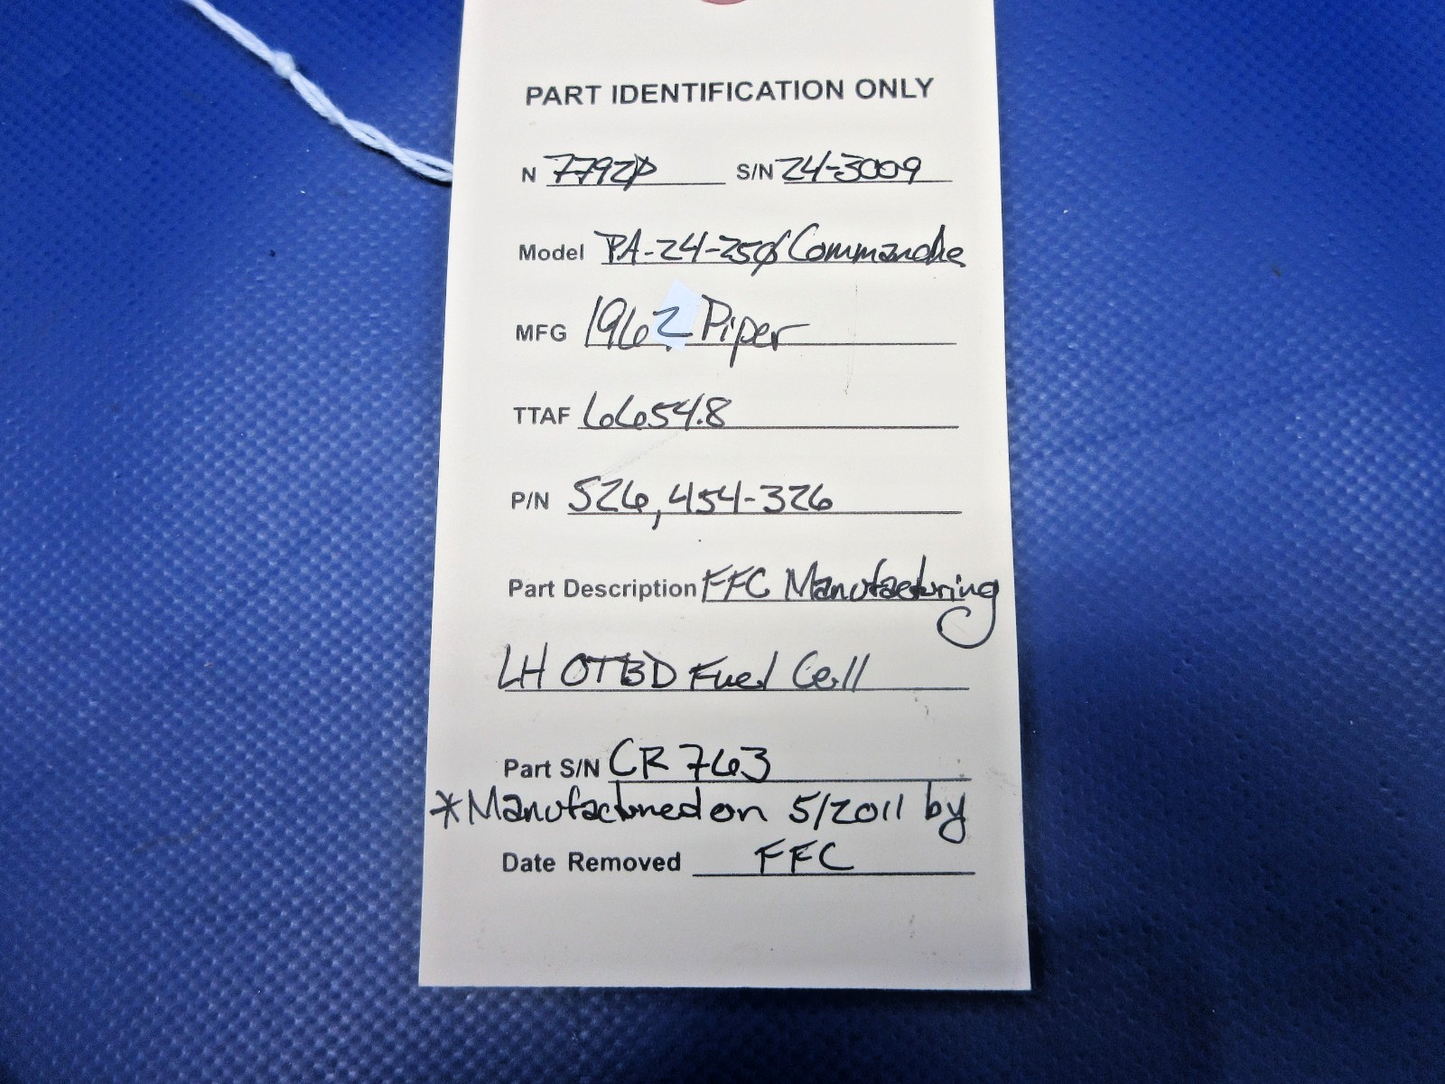 PART IDENTIFICATION ONLY
N 7792P S/N 24-3009
Model PA-24-250 Commanche
MFG 1962 Piper
TTAF 6654.8
P/N 526, 454-326
Part Description FFC Manufacturing
LH OTBD Fuel Cell
Part S/N CR 763
*Manufactured on 5/2011 by
Date Removed FFC